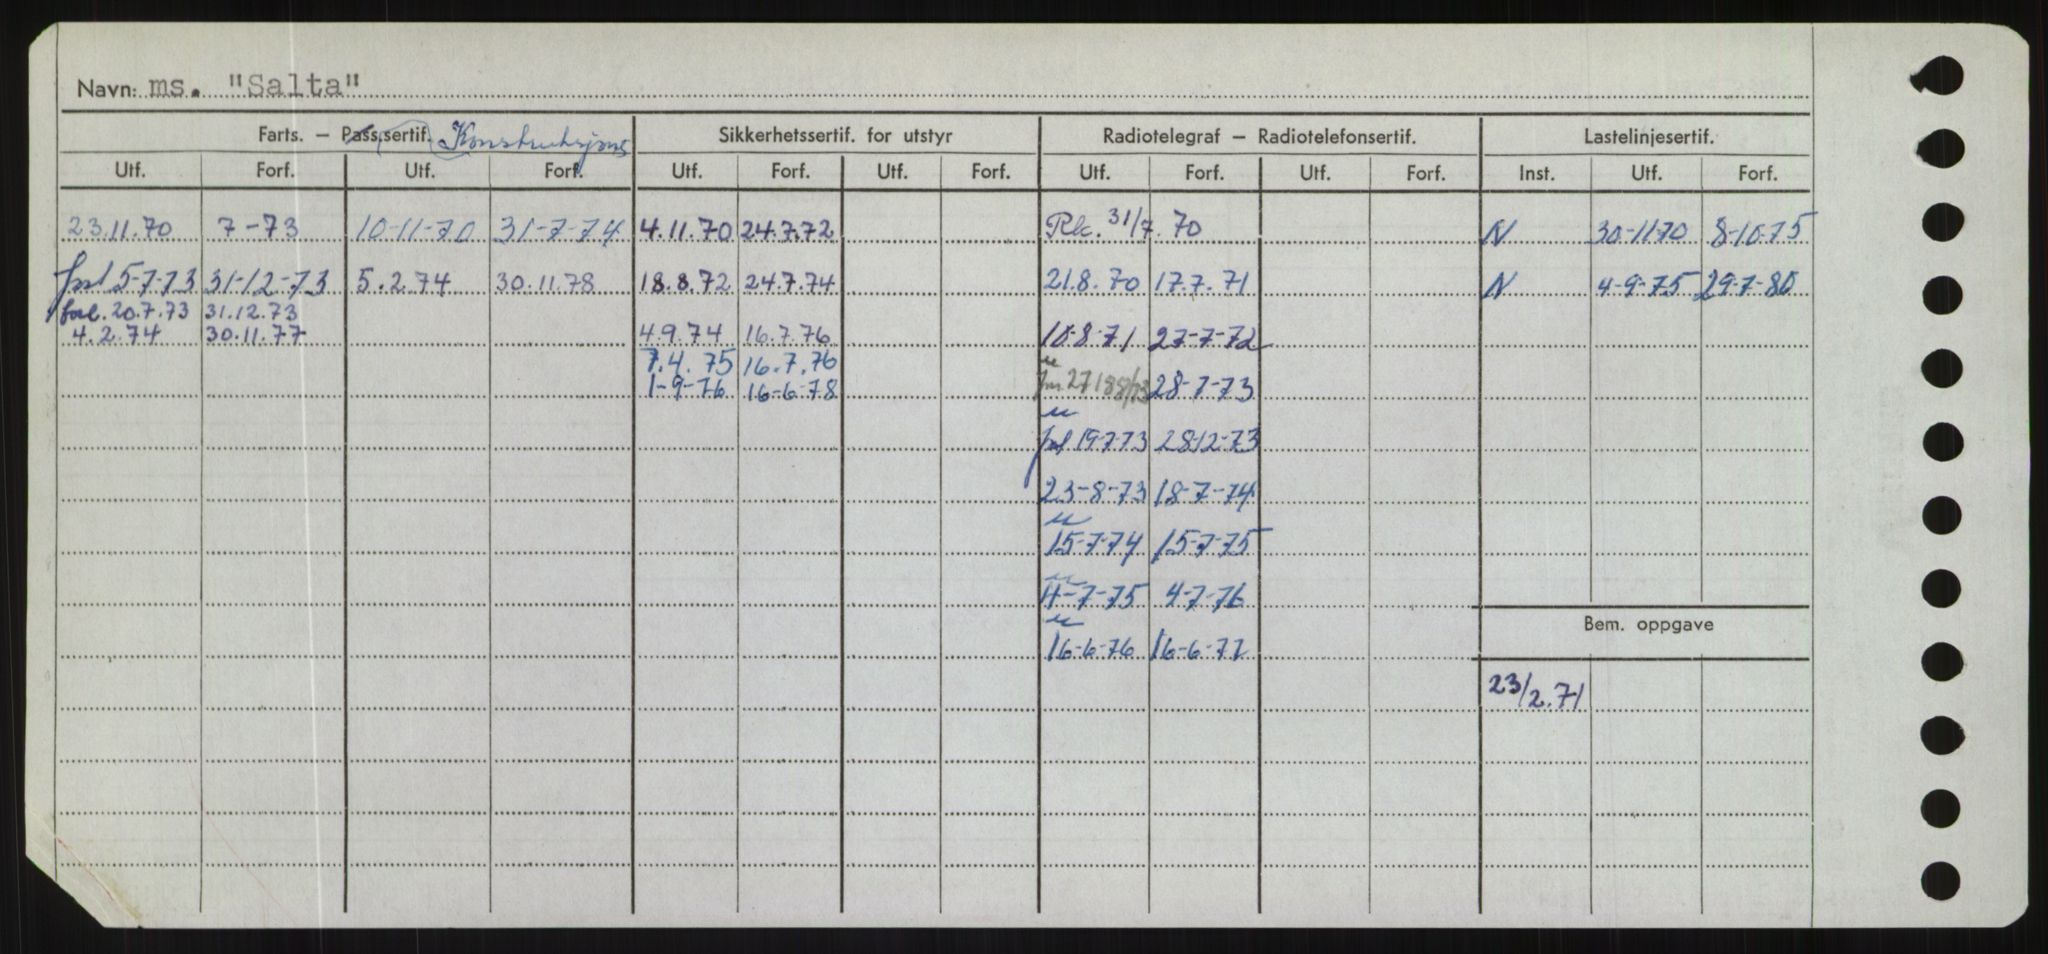 Navn: ms. "Salta"
Farts. – Pass.sertif. Konstruksjons Sikkerhetssertif. for utstyr Radiotelegraf – Radiotelefonsertif. Lastelinjesertif.
Utf. Forf. Utf. Forf. Utf. Forf. Utf. Forf. Utf. Forf. Utf. Forf. Inst. Utf. Forf.
23.11.70 7-73 10-11-70 31-7-74 4.11.70 24.7.72 31/7.70 N 30-11-70 8-10-75
5-7-73 31-12-73 5.2.74 30.11.78 18.8.72 24.7.74 21.8.70 17.7.71 N 4-9-75 29-7-80
20.7.73 31.12.73
4.2.74 30.11.77 4.9.74 16.7.76 10-8-71 27-7-72
7.4.75 16.7.76
1-9-76 16-6-78 28-7-73
19-7-73 28-12-73
23-8-73 18-7-74
15-7-74 15-7-75
4-7-75 4-7-76
Bem. oppgave
16-6-76 16-6-77
23/2.71